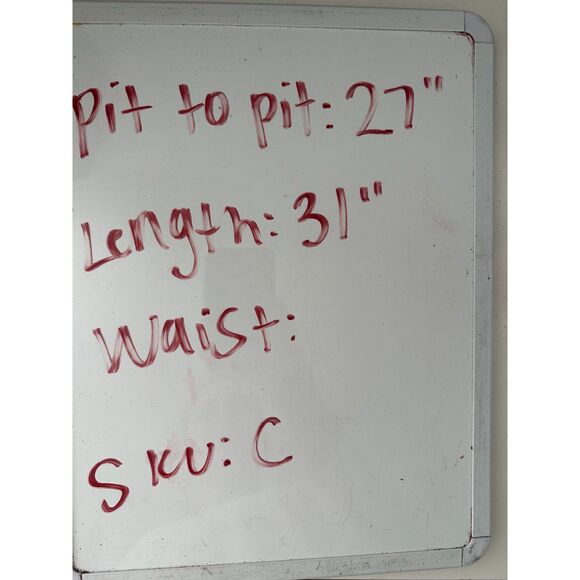 Pit to pit: 27"
Length: 31"
Waist:
SKU: C